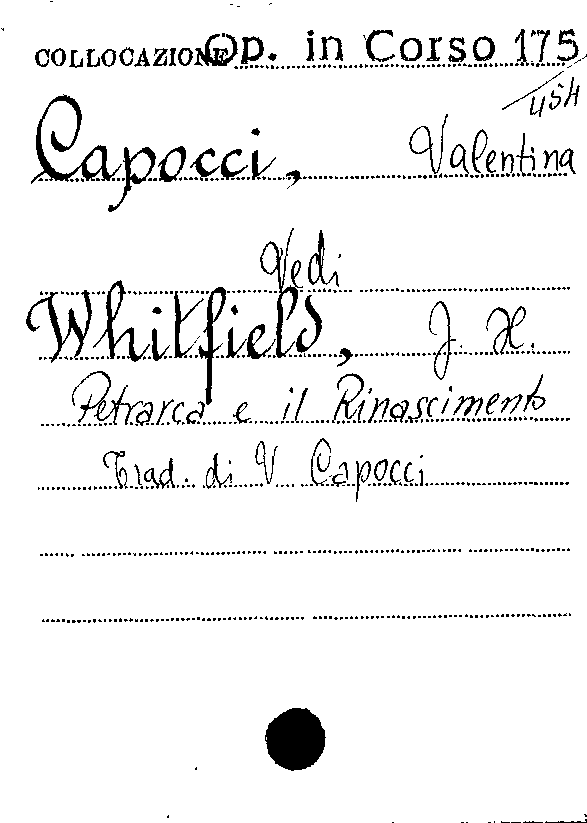 COLLOCAZIONE Op. in Corso 175
/454
Capocci, Valentina
Vedi
Whitfield, J. H.
Petrarca e il Rinascimento
Trad. di V Capocci